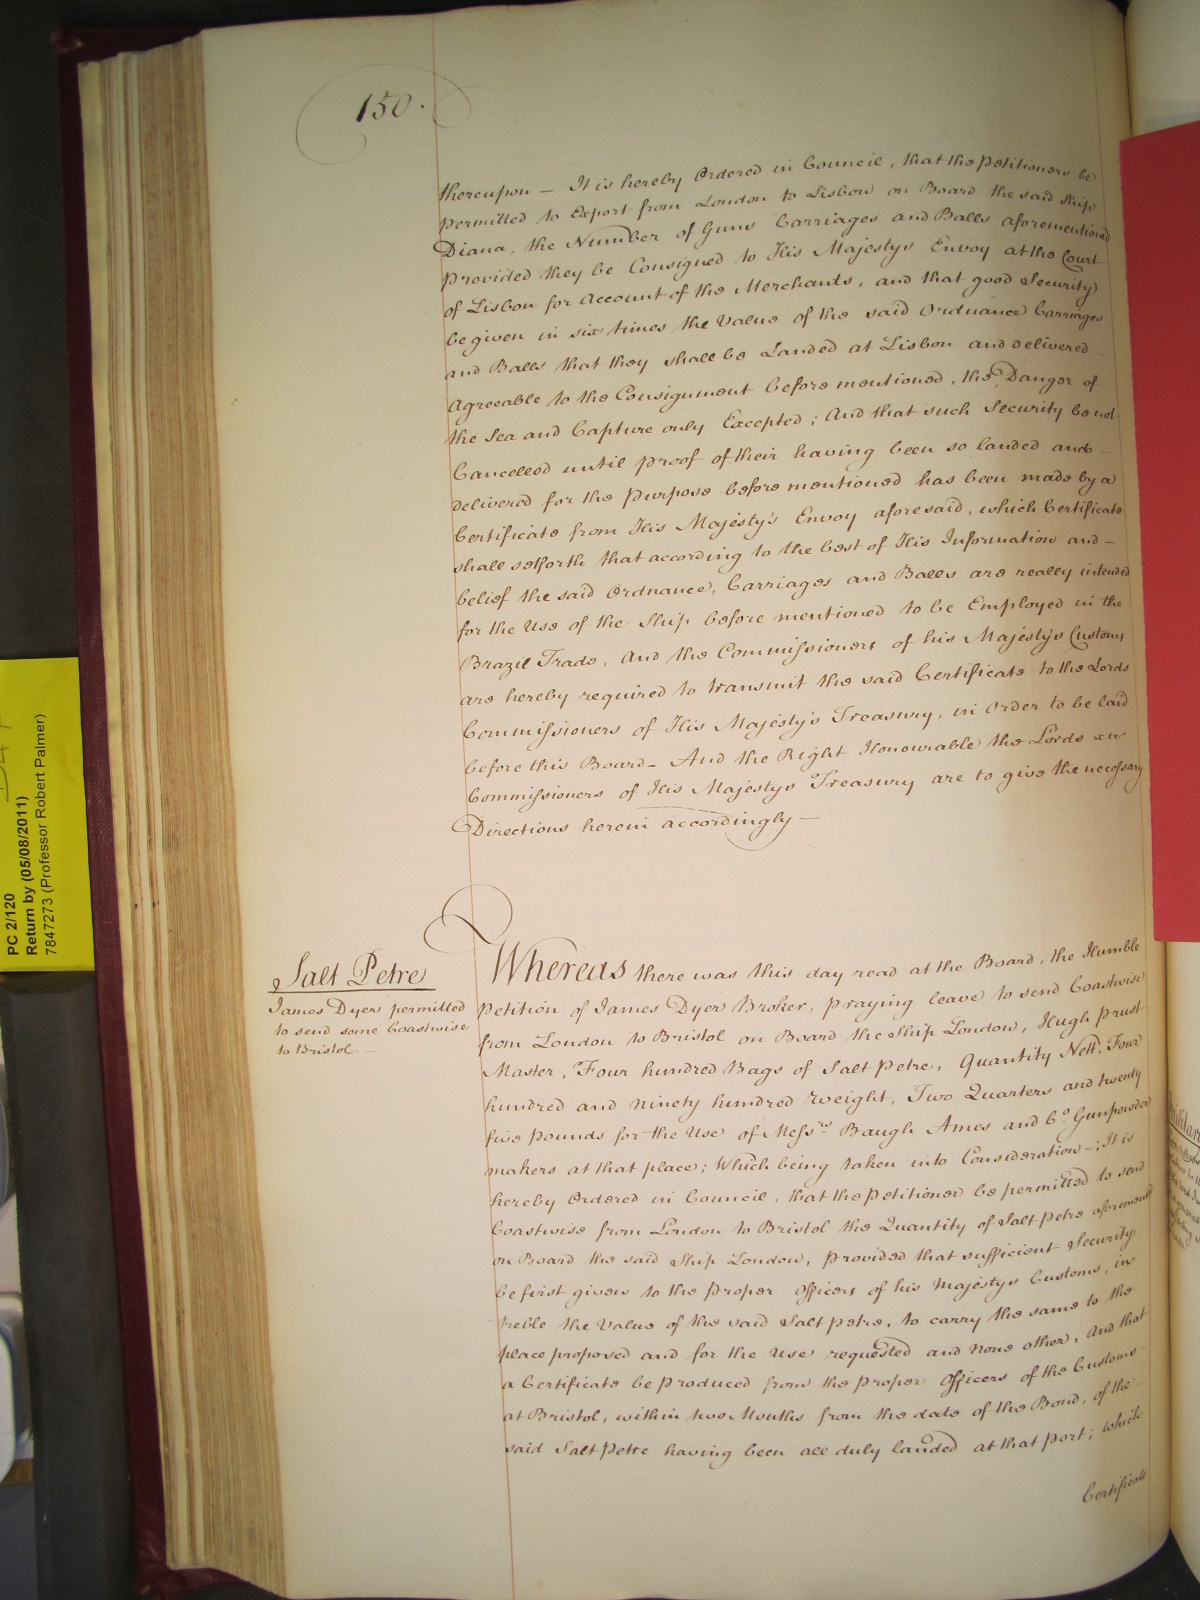 150.
thereupon — It is hereby Ordered in Council, that the Petitioners be
permitted to Export from London to Lisbon on Board the said Ship
Diana, the Number of Guns Carriages and Balls aforementioned
Provided they be Consigned to His Majestys Envoy at the Court
of Lisbon for Account of the Merchants, and that good Security
be given in six times the Value of the said Ordnance Carriages
and Balls that they shall be Landed at Lisbon and delivered —
Agreeable to the Consignment before mentioned, the Danger of
the Sea and Capture only Excepted; And that such Security be not
Cancelled until proof of their having been so landed and —
delivered for the purpose before mentioned has been made by a
Certificate from His Majesty's Envoy aforesaid, which Certificate
shall setforth that according to the best of His Information and —
belief the said Ordnance, Carriages and Balls are really intended
for the Use of the Ship before mentioned to be Employed in the
Brazil Trade, And the Commissioners of his Majestys Customs
are hereby required to transmit the said Certificate to the Lords
Commissioners of His Majesty's Treasury, in Order to be laid
before this Board — And the Right Honourable the Lords
Commissioners of His Majestys Treasury are to give the necessary
Directions herein accordingly —
Salt Petre
James Dyer permitted
to send some Coastwise
to Bristol —
Whereas there was this day read at the Board, the Humble
Petition of James Dyer Broker, praying leave to send Coastwise
from London to Bristol on Board the Ship London, Hugh Prust
Master, Four hundred Bags of Salt Petre, Quantity Nett, Four
hundred and ninety hundred weight, Two Quarters and twenty
five pounds for the Use of Mess.rs Baugh Ames and Co. Gunpowder
makers at that place; Which being taken into Consideration —; It is
hereby Ordered in Council, that the Petitioner be permitted to send
Coastwise from London to Bristol the Quantity of Salt Petre aforement.d
on Board the said Ship London, provided that sufficient Security
be first given to the Proper Officers of his Majestys Customs, in
treble the Value of the said Salt petre, to carry the same to the
place proposed and for the Use requested and none other; And that
a Certificate be produced from the Proper Officers of the Customs —
at Bristol, within two Months from the date of the Bond, of the —
said Salt Petre having been all duly landed at that port; which
Certificate
PC 2/120
Return by (05/08/2011)
7847273 (Professor Robert Palmer)